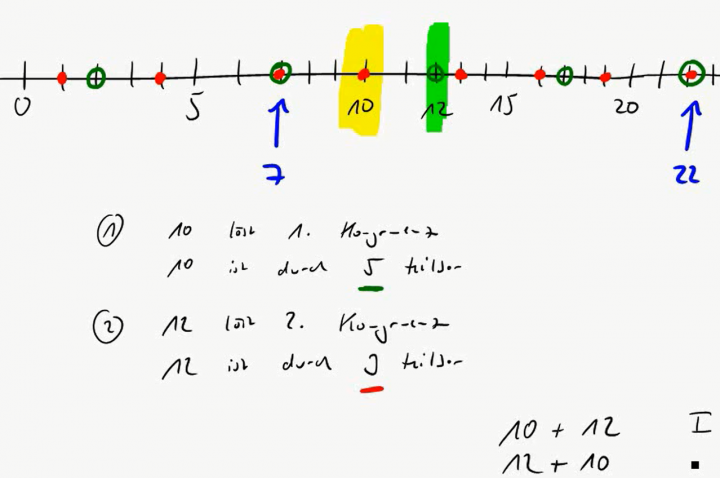 0 5 10 12 15 20
7 22
① 10 löst 1. Kongruenz
10 ist durch 5 teilbar
② 12 löst 2. Kongruenz
12 ist durch 3 teilbar
10 + 12 I
12 + 10